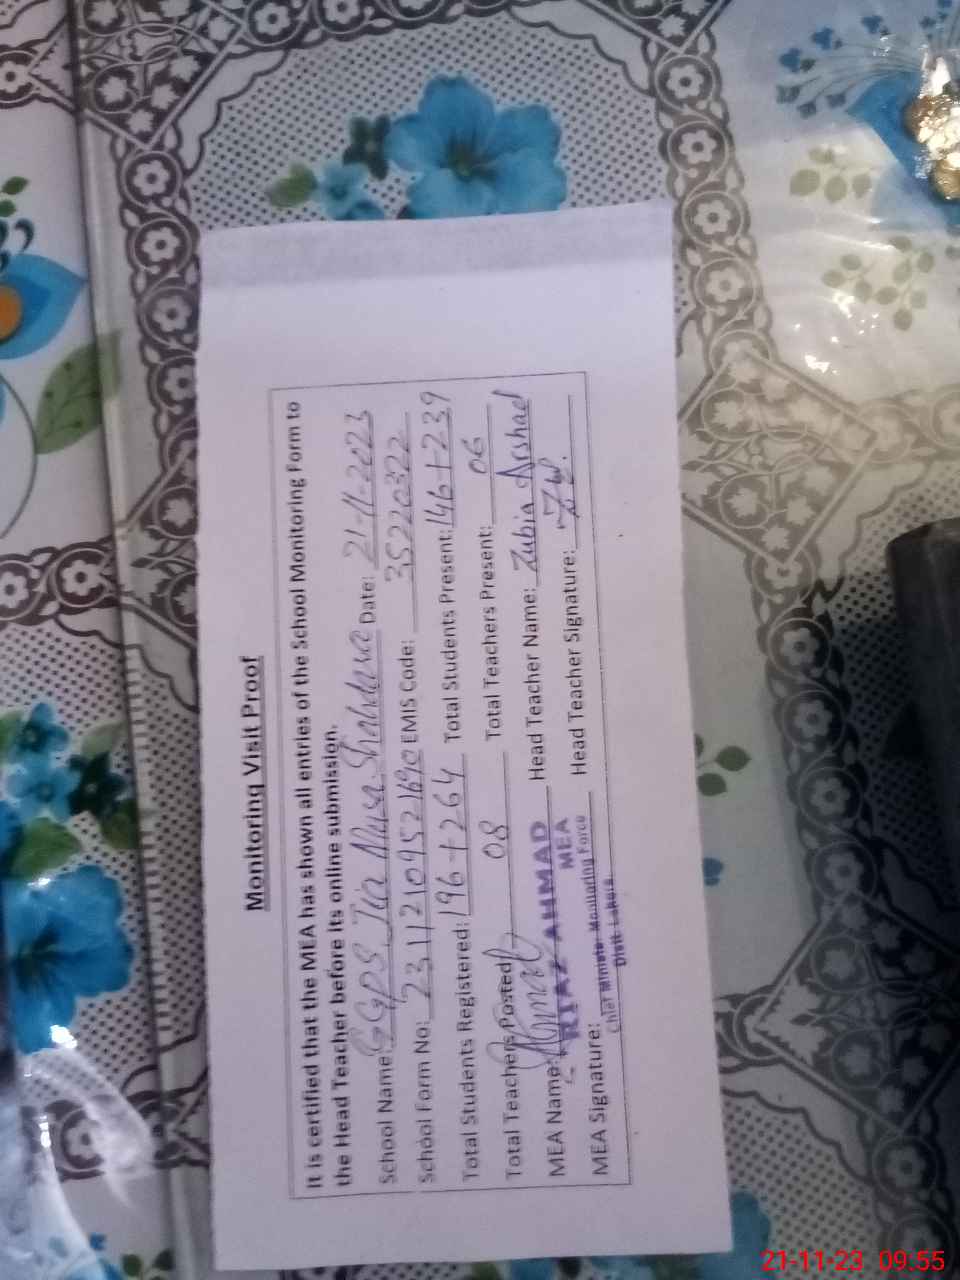 Monitoring Visit Proof
It is certified that the MEA has shown all entries of the School Monitoring Form to
the Head Teacher before its online submission.
School Name GGPS Jia Musa Shahdara Date: 21-11-2023
School Form No: 23112109521690 EMIS Code: 35220322
Total Students Registered: 196+264 Total Students Present: 146+239
Total Teachers Posted 08 Total Teachers Present: 06
MEA Name: RIAZ AHMAD Head Teacher Name: Zubia Arshad
MEA
MEA Signature: Chief Minister Monitoring Force Head Teacher Signature:
Distt Lahore
21-11-23 09:55